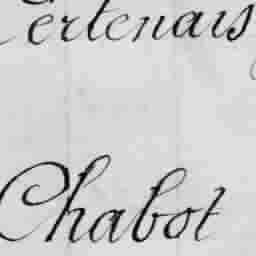 Certenais
Chabot